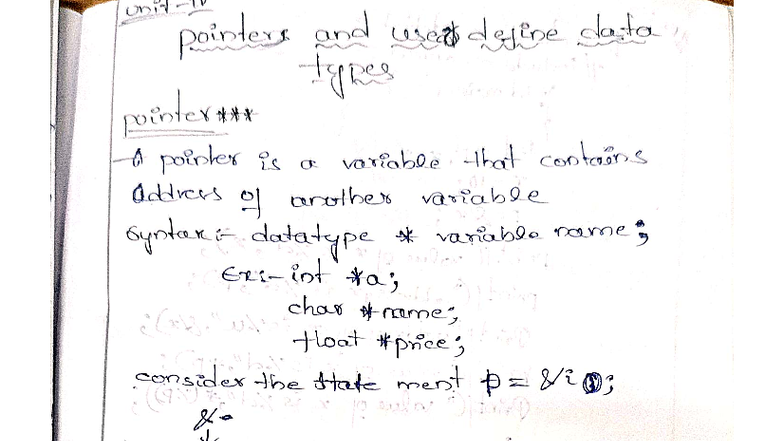 unit-IV
pointers and used define data
types
pointer***
A pointer is a variable that contains
Address of another variable
Syntax:- datatype * variable name;
Ex:- int *a;
char *name;
float *price;
consider the state ment p = &i;
&-